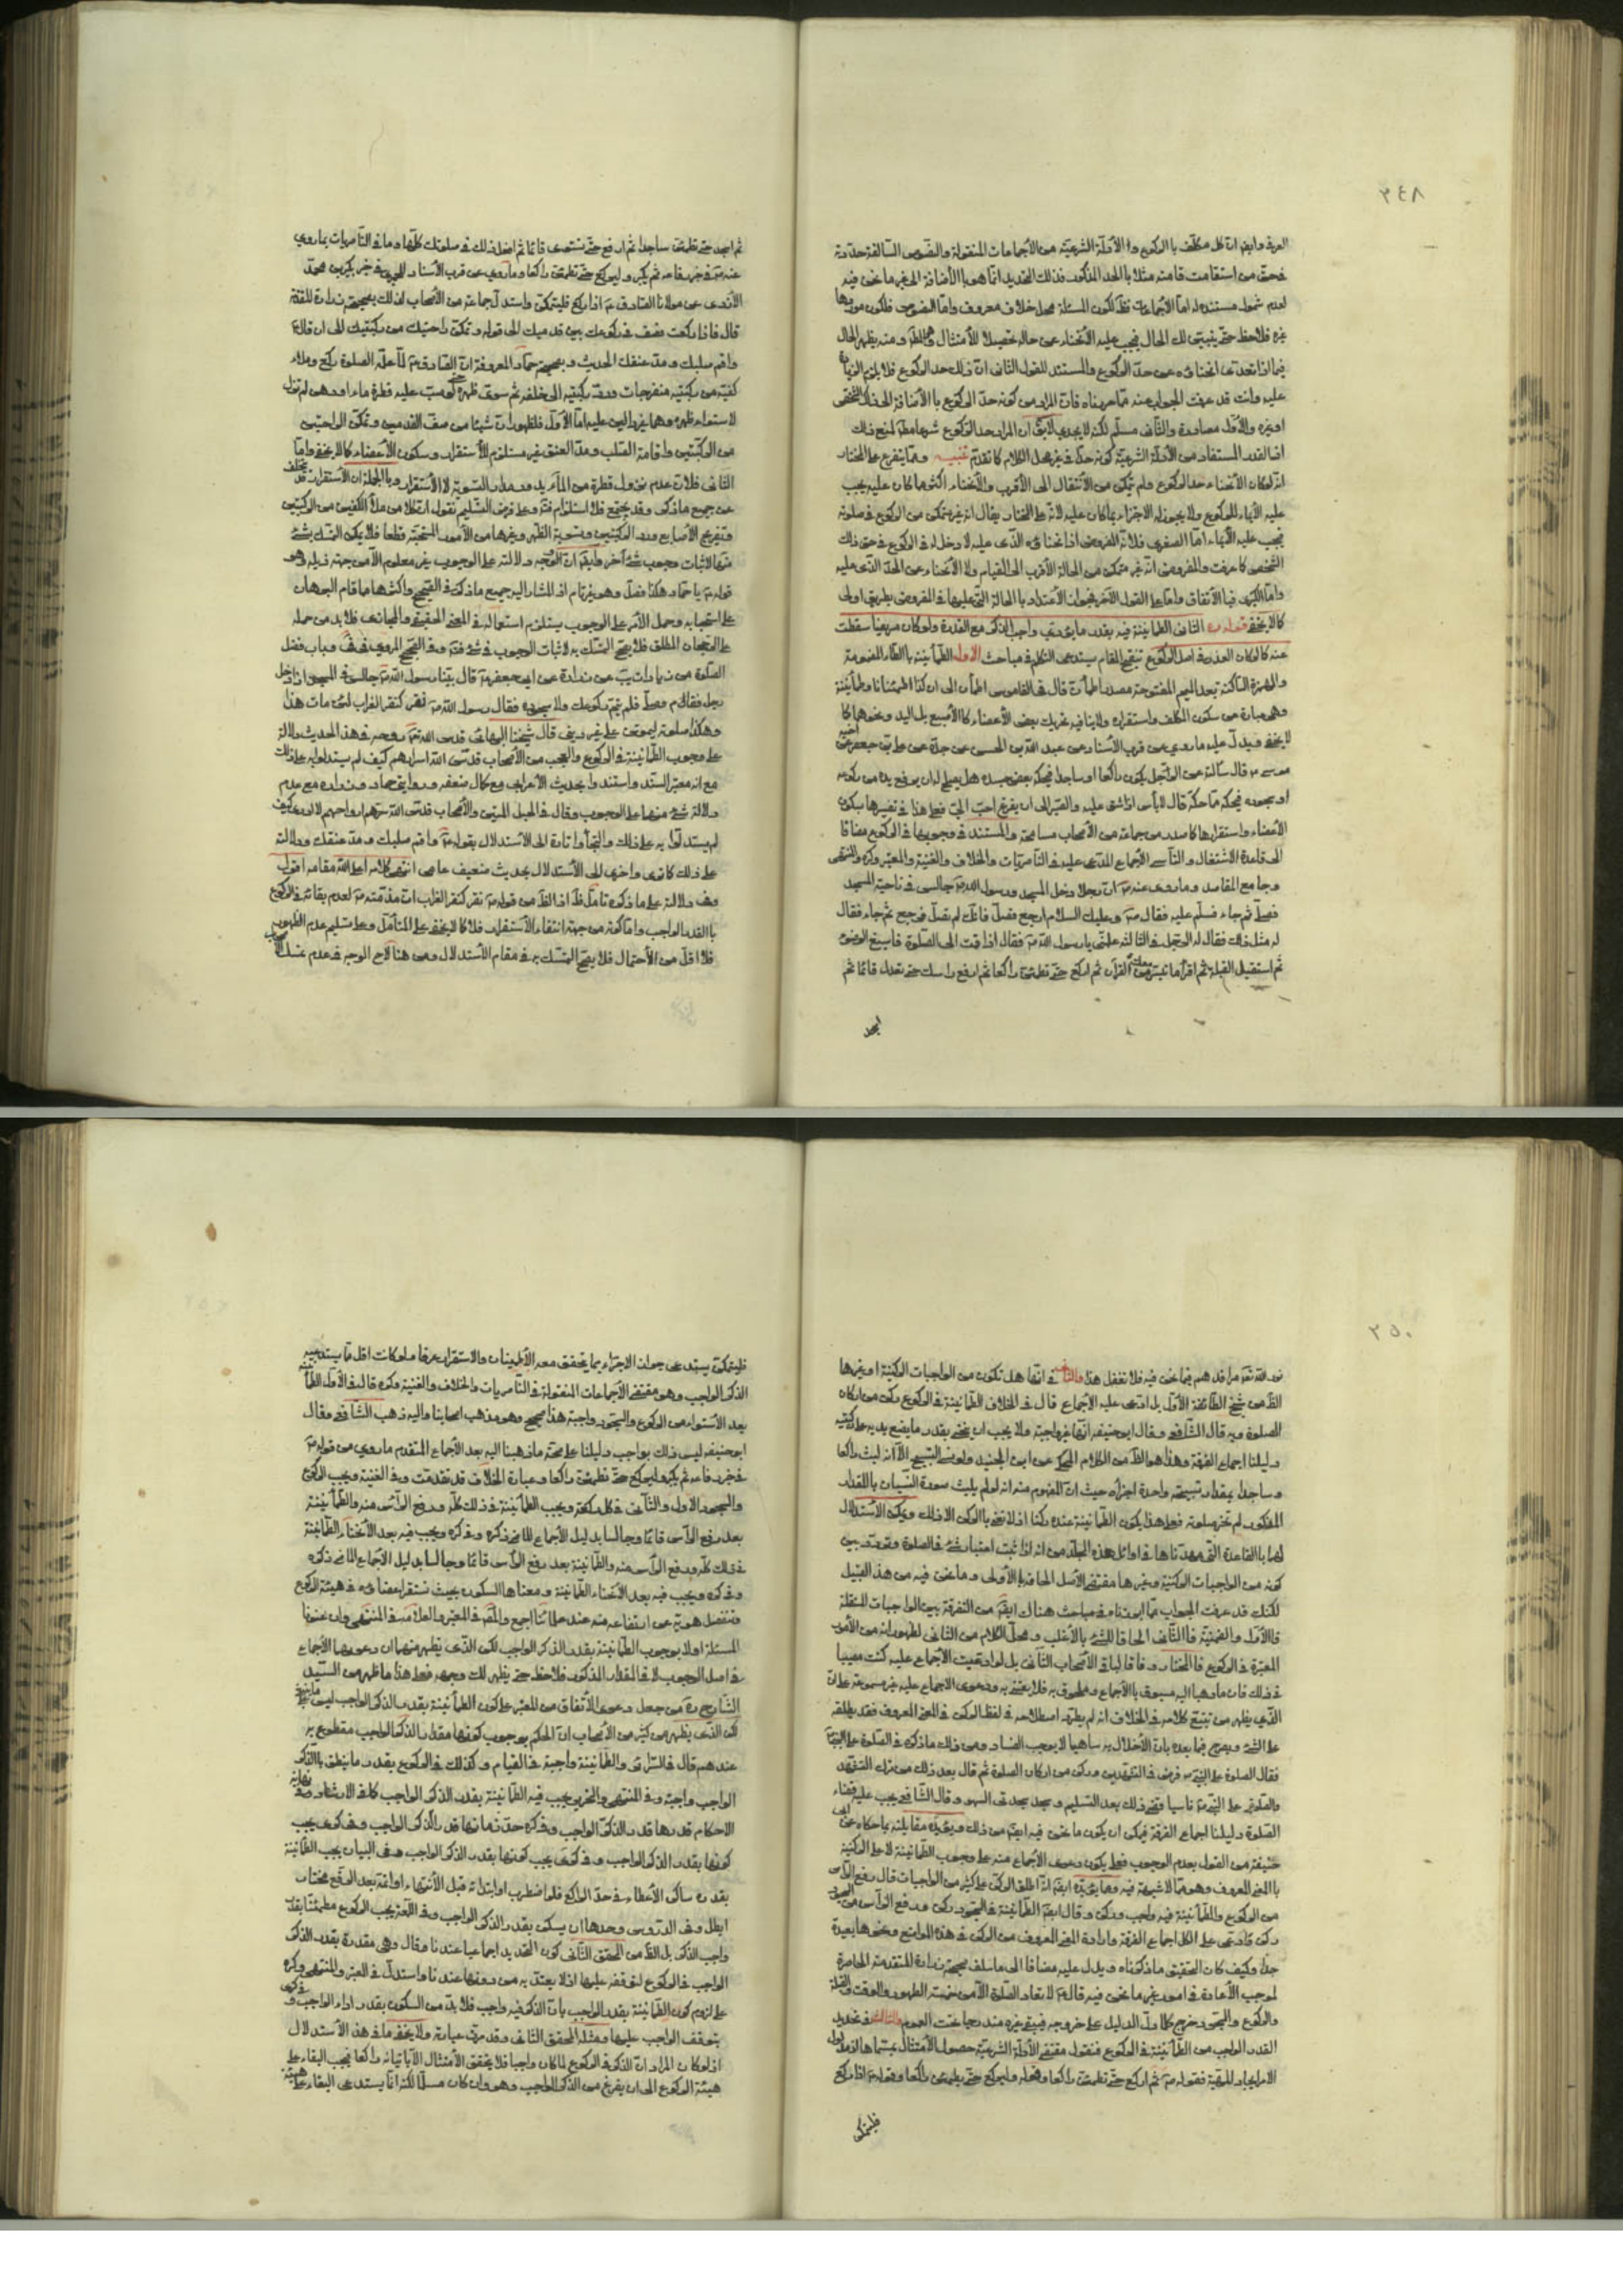 ٢٤٨
العرف وايض ان كل مكلف بالركوع واما الأدلة الشرعية من الأجماعات المنقولة والنصوص السالفة حددته
فحق من استقامت قامته مثلا بالحد المذكور فذلك التحديد انما هو بالأضافة الى غير ما نحن فيه
لعدم شمول مستنده له اما الأجماعات فظ لكون المسئلة محل خلاف معروف واما النصوص فلكون موردها
غيره فلاحظ حتى يتبين لك الحال فيجب عليه الأنحناء عن حاله تحصيلا للأمتثال ومنه يظهر الحال
فيما اذا تعدى انحناؤه عن حد الركوع والمستند للقول الثانى ان ذلك حد الركوع فلا يلزم الزيادة
عليه وانت قد عرفت الجواب عنه مما مهدناه فان المراد من كونه حد الركوع بالأضافة الى ذلك الشخص
او غيره والأول مصادرة والثانى مسلم لكنه لا يجدى لا يق ان المراد حد الركوع شرعا مطلقا لمنع ذلك
اذ القدر المستفاد من الأدلة الشرعية كونه حدا في غير محل الكلام كما تقدم تنبيه ومما يتفرع على المختار
انه لو كان الأنحناء حد الركوع ولم يتمكن من الأنتقال الى الأقرب والأنحناء اكثر مما كان عليه يجب
عليه الأيماء للركوع ولا يجوز له الاجتزاء بما كان عليه لأنه على المختار يقال انه غير متمكن من الركوع في صلوته
فيجب عليه الأيماء اما الصغرى فلأن المفروض ان انحناؤه الذى عليه لا دخل له في الركوع في حق ذلك
الشخص كما عرفت والمفروض انه غير متمكن من الحالة الأقرب الى القيام ولا الأنحناء عن الحد الذى عليه
واما الكبرى فبالأتفاق واما على القول الآخر فيجوز الأعتداد بالحالة التى عليها في المفروض بطريق اولى
كما لا يخفى قوله ره الثانى الطمانينة فيه بقدر ما يؤدى واجب الذكر مع القدرة ولو كان مريضا سقطت
عنه كما لو كان العذر في اصل الركوع تنقيح المقام يستدعى التكلم في مباحث الاول الطمأنينة بالطاء المضمومة
والهمزة الساكنة بعد الميم المفتوحة مصدر اطمأن قال في القاموس اطمأن الى ان كذا اطمئنانا وطمأنينة
وهى عبارة عن سكون المكلف واستقراره ولا ينافيه تحريك بعض الأعضاء كالأصبع بل اليد ونحوها كما
لا يخفى ويدل عليه ما روى عن قرب الأسناد عن عبد الله بن الحسن عن جده عن على بن جعفر عن اخيه
موسى ع قال سألته عن الرجل يكون راكعا او ساجدا فيحكه بعض جسده هل يصلح له ان يرفع يده من ركوعه
او سجوده فيحكه مما حكه قال لا بأس اذا شق عليه والصبر الى ان يفرغ احب الى فعلى هذا في تفسيرها بسكون
الأعضاء واستقرارها كما صدر من جماعة من الأصحاب مسامحة والمستند في وجوبها في الركوع مضافا
الى قاعدة الاشتغال والتأسى الأجماع المدعى عليه في الناصريات والخلاف والغنية والمعتبر وكره والمنتهى
وجامع المقاصد وما روى عنه ص ان رجلا دخل المسجد ورسول الله ص جالس في ناحية المسجد
فصلى ثم جاء فسلم عليه فقال ص وعليك السلام ارجع فصل فانك لم تصل فرجع ثم جاء فقال
له مثل ذلك فقال له الرجل في الثالثة علمنى يا رسول الله ص فقال اذا قمت الى الصلوة فاسبغ الوضوء
ثم استقبل القبلة ثم اقرأ ما تيسر معك من القرآن ثم اركع حتى تطمئن راكعا ثم ارفع راسك حتى تعتدل قائما ثم
اسجد
ثم اسجد حتى تطمئن ساجدا ثم ارفع حتى تستوى قائما ثم افعل ذلك في صلوتك كلها وما في الناصريات بما روى
عنه ص في خبر رفاعة ثم يكبر وليركع حتى تطمئن راكعا وما روى عن قرب الأسناد في خبر بكر بن محمد
الأزدى عن مولانا الصادق ع اذا ركع فليتمكن واستدل جماعة من الأصحاب لذلك بصحيحة زرارة المتقدمة
قال فاذا ركعت فصف في ركوعك بين قدميك الى قوله وتمكن راحتيك من ركبتيك الى ان قال ع
واقم صلبك ومد عنقك الحديث وبصحيحة حماد المعروفة ان الصادق ع لما علمه الصلوة ركع وملاء
كفيه من ركبتيه منفرجات ورد ركبتيه الى خلفه ثم سوى ظهره حتى لو صب عليه قطرة ماء او دهن لم تزل
لاستواء ظهره وهما غير دالين عليه اما الأول فلظهور ان شيئا من صف القدمين وتمكن الراحتين
من الركبتين واقامة الصلب ومد العنق غير مستلزم للأستقرار وسكون الأعضاء كما لا يخفى واما
الثانى فلأن عدم نزول قطرة من الماء يدور مدار التسوية لا الأستقرار وبالجملة ان الأستقرار قد يتخلف
عن جميع ما ذكر وقد يجتمع فلا استلزام فتم وعلى فرض التسليم نقول ان كلا من ملأ الكفين من الركبتين
وتفريج الأصابع ورد الركبتين وتسوية الظهر وغيرها من الأمور المستحبة قطعا فلا يمكن التمسك بشئ
منها لاثبات وجوب شئ آخر وايض ان الموجه دلالته على الوجوب غير معلوم الا من جهة ذيله وهو
قوله ع يا حماد هكذا فصل وهو غير تام اذ المشار اليه جميع ما ذكر في الصحيح واكثرها مما قام البرهان
على استحبابه وحمل الأمر على الوجوب يستلزم استعماله في المعنى الحقيقى والمجازى فلا بد من حمله
على الرجحان المطلق فلا يصح التمسك به لاثبات الوجوب في شئ فتم وفي الصحيح المروى في في وباب فضل
الصلوة من زيادات يب عن زرارة عن ابى جعفر ع قال بينا رسول الله ص جالس في المسجد اذ دخل
رجل فقام فصلى فلم يتم ركوعه ولا سجوده فقال رسول الله ص نقر كنقر الغراب لئن مات هذا
وهكذا صلوته ليموتن على غير دينى قال شيخنا البهائى قدس الله روحه في هذا الحديث دلالة
على وجوب الطمأنينة في الركوع والعجب من الأصحاب قدس الله اسرارهم كيف لم يستدلوا به على ذلك
مع انه معتبر السند واستندوا بحديث الأعرابى مع كمال ضعفه وروايتى حماد وزرارة مع عدم
دلالة شئ منهما على الوجوب وقال في الحبل المتين والأصحاب قدس الله سرهم ارواحهم
لم يستدلوا به على ذلك والتجأوا تارة الى الأستدلال بقوله ع واقم صلبك ومد عنقك ودلالته
على ذلك كما ترى واخرى الى الأستدلال بحديث ضعيف عامى انتهى كلامه اعلى الله مقامه اقول
وفي دلالته على ما ذكره تأمل ظ اذ الظ من قوله ص نقر كنقر الغراب ان مذمته ص لعدم بقائه في الركوع
بالقدر الواجب واما كونه من جهة انتفاء الأستقرار فلا كما لا يخفى على المتأمل وعلى تسليم عدم الظهور
فلا اقل من الأحتمال فلا يصح التمسك به في مقام الأستدلال ومن هنا لاح الوجه في عدم تمسك
٢٥٠
نور الله تعه مراقدهم فيما نحن فيه فلا تغفل هذا والثانى في انها هل تكون من الواجبات الركنية او غيرها
الظ من شيخ الطائفة الأول بل ادعى عليه الأجماع قال في الخلاف الطمانينة في الركوع ركن من اركان
الصلوة وبه قال الشافعى وقال ابو حنيفة انها غير واجبة ولا يجب ان ينحنى بقدر ما يضع يديه على ركبتيه
دليلنا اجماع الفرقة وهذا هو الظ من الكلام المحكى عن ابن الجنيد ولو نسى التسبيح الا انه لبث راكعا
وساجدا بمقدار تسبيحة واحدة اجزأه حيث ان المفهوم منه انه لو لم يلبث صورة النسيان بالمقدار
المذكور لم تجز صلوته فعلى هذا يكون الطمأنينة عنده ركنا اذ لا نعنى بالركن الا ذلك ويمكن الأستدلال
لهما بالقاعدة التى مهدناها في اوائل هذه المجلد من انه اذا ثبت اعتبار شئ في الصلوة وتردد بين
كونه من الواجبات الركنية وغيرها مقتضى الأصل الحاقه بالأولى وما نحن فيه من هذا القبيل
لكنك قد عرفت الجواب مما ابرزناه في مباحث هناك ايض من التفرقة بين الواجبات المستقلة
فالأول والضمنية فالثانى الحاقا للشئ بالأغلب ومحل الكلام من الثانى لظهور انه من الأمور
المعتبرة في الركوع فالمختار وفاقا لباقى الأصحاب الثانى بل لو ادعيت الأجماع عليه كنت مصيبا
في ذلك فان ما ذهبا اليه مسبوق بالأجماع وملحوق به فلا يعتنى به ودعوى الاجماع عليه غير مسموعة على ان
الذى يظهر من تتبع كلامه في الخلاف انه لم يطرد اصطلاحه في لفظ الركن في المعنى المعروف فقد يطلقه
على الشئ ويصرح فيما بعده بان الأخلال به ساهيا لا يوجب الفساد ومن ذلك ما ذكره في الصلوة على النبى ص
فقال الصلوة على النبى ص فرض في التشهدين وركن من اركان الصلوة ثم قال بعد ذلك من ترك التشهد
والصلوة على النبى ص ناسيا قضى ذلك بعد التسليم وسجد سجدتى السهو وقال الشافعى يجب عليه قضاء
الصلوة دليلنا اجماع الفرقة فيمكن ان يكون ما نحن فيه ايض من ذلك ويؤيده مقابلته بما حكاه عن ابى
حنيفة من القول بعدم الوجوب فعلى يكون دعوى الأجماع منه على وجوب الطمأنينة لا على الركنية
بالمعنى المعروف وهو مما لا شبهة فيه ومما يؤيده ايض انه اطلق الركن على كثير من الواجبات قال رفع الراس
من الركوع والطمأنينة فيه واجب وركن وقال ايض الطمأنينة في السجود ركن ورفع الرأس من السجود
ركن وادعى على الكل اجماع الفرقة وارادة المعنى المعروف من الركن في هذه المواضع ونحوها بعيدة
جدا وكيف كان التحقيق ما ذكرناه ويدل عليه مضافا الى ما سلف صحيحة زرارة المتقدمة الحاصرة
لموجب الأعادة في امور غير ما نحن فيه قال ع لا تعاد الصلوة الا من خمسة الطهور والوقت والقبلة
والركوع والسجود وخرج كلما دل الدليل على خروجه فيبقى غيره مندرجا تحت العموم والثالث في تحديد
القدر الواجب من الطمأنينة في الركوع فنقول مقتضى الأدلة الشرعية حصول الأمتثال بمسماها
الامر ايجاد المهية فقوله ص ثم اركع حتى تطمئن راكعا وقوله وليركع حتى يطمئن راكعا وقوله ع اذا ركع
فليتمكن
فليتمكن يستدعى جواز الاجتزاء بما يتحقق معه الأطمينان والاستقرار عرفا ولو كانت اقل مما يستدعيه
الذكر الواجب وهو مقتضى الأجماعات المنقولة في الناصريات والخلاف والغنية وكره قال في الأول الطمأنينة
بعد الأستواء من الركوع والسجود واجبة هذا صحيح وهو مذهب اصحابنا واليه ذهب الشافعى وقال
ابو حنيفة ليس ذلك بواجب ودليلنا على صحة ما ذهبنا اليه بعد الأجماع المتقدم ما روى من قوله ص
في خبر رفاعة ثم يكبر وليركع حتى تطمئن راكعا وعبارة الخلاف قد تقدمت وفي الغنية ويجب الركوع
والسجود الاول والثانى في كل ركعة ويجب الطمأنينة في ذلك كله ورفع الرأس منه والطمأنينة
بعد رفع الرأس قائما وجالسا بدليل الأجماع الماضى ذكره وفي كره ويجب فيه بعد الأنحناء الطمأنينة
في ذلك كله ورفع الرأس منه والطمأنينة بعد رفع الرأس قائما وجالسا بدليل الاجماع الماضى ذكره
وفي كره ويجب فيه بعد الأنحناء الطمأنينة ومعناها السكون بحيث تستقر اعضاؤه في هيئة الركوع
وينفصل هويه عن ارتفاعه منه عند علمائنا اجمع والمحقق في المعتبر والعلامة في المنتهى وان عنونا
المسئلة اولا بوجوب الطمأنينة بقدر الذكر الواجب لكن الذى يظهر منهما ان دعويهما الأجماع
في اصل الوجوب لا في المقدار المذكور فلاحظ حتى يظهر لك وجهه فعلى هذا ما ظهر من السيد
الشارح ره من جعل دعوى الأتفاق من المعتبر على كون الطمأنينة بقدر الذكر الواجب ليس على ما ينبغى
لكن الذى يظهر من كثير من الأصحاب ان الحكم بوجوب كونها مقدار الذكر الواجب مقطوع به
عندهم قال في السرائر والطمأنينة واجبة في القيام وكذلك في الركوع بقدر ما ينطق بالذكر
الواجب واجبة وفي المنتهى والتحرير يجب فيه الطمأنينة بقدر الذكر الواجب كما في الارشاد وفي نهاية
الاحكام قدرها قدر الذكر الواجب وفي كره حد زمانها قدر الذكر الواجب وفي كرى يجب
كونها بقدر الذكر الواجب وفي كرى يجب كونها بقدر الذكر الواجب وفي البيان يجب الطمأنينة
بقدره ساكن الأعضاء في حد الراكع فلو اضطرب او ابتدأ به قبل الأنتهاء او اتمه بعد الرفع مختارا
ابطل وفي الدروس وحدها ان يسكن بقدر الذكر الواجب وفي اللمعة يجب الركوع مطمئنا بقدر
واجب الذكر بل الظ من المحقق الثانى كون التحديد اجماعيا عندنا وقال وهى مقدرة بقدر الذكر
الواجب في الركوع لتوقفه عليها اذ لا يعتد به من دونها عندنا واستدل في المعتبر والمنتهى وكره
على لزوم كون الطمأنينة بقدر الواجب بان الذكر فيه واجب فلا بد من السكون بقدر اداء الواجب وفي كرى
يتوقف الواجب عليها ومثله المحقق الثانى وقد مرت عبارته ولا يخفى ما في هذا الأستدلال
اذ لو كان المراد ان الذكر في الركوع لما كان واجبا فلا يتحقق الأمتثال الا باتيانه راكعا فيجب البقاء على
هيئة الركوع الى ان يفرغ من الذكر الواجب وهو وان كان مسلما لكنه انما يستدعى البقاء على هيئة